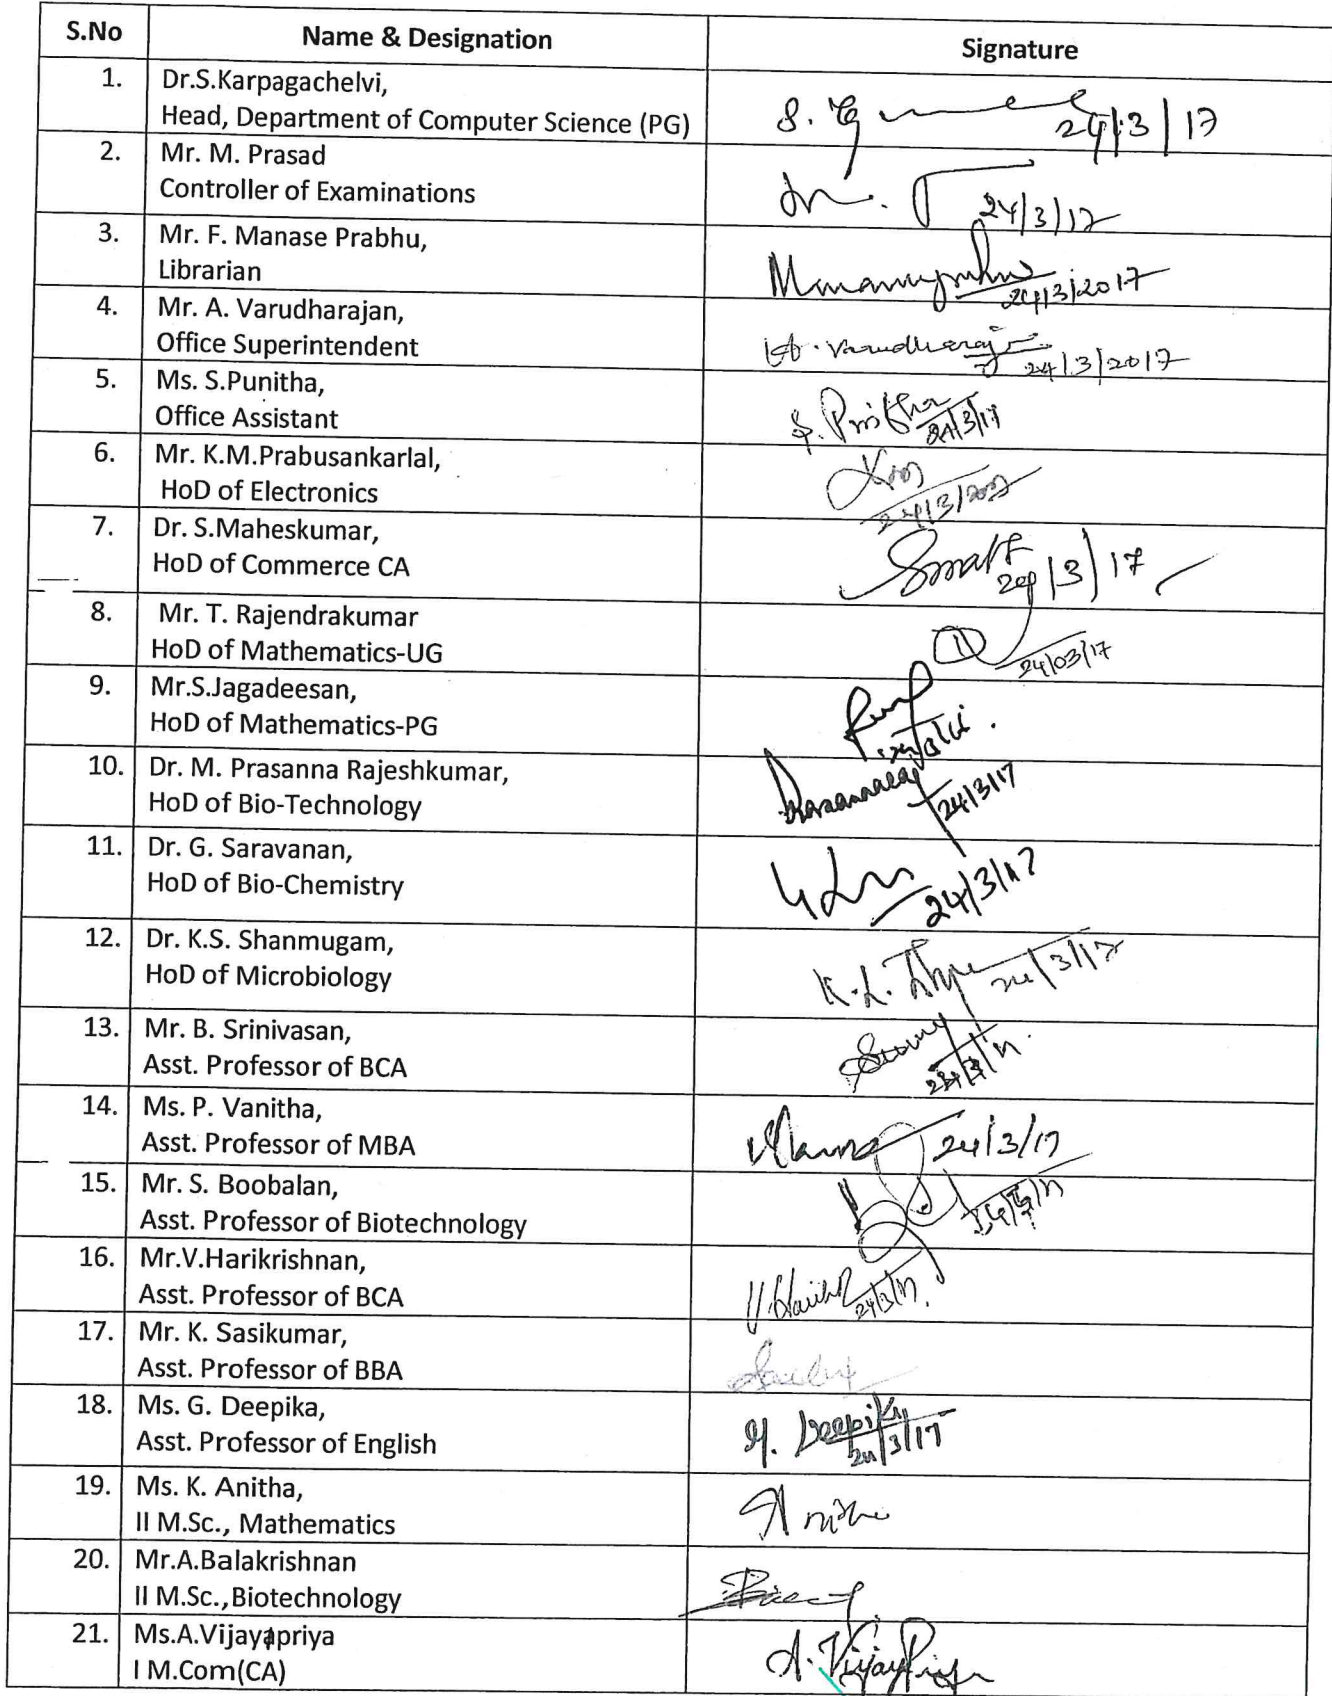 S.No Name & Designation Signature
1. Dr.S.Karpagachelvi,
Head, Department of Computer Science (PG)
24/3/17
2. Mr. M. Prasad
Controller of Examinations
24/3/17
3. Mr. F. Manase Prabhu,
Librarian
24/3/2017
4. Mr. A. Varudharajan,
Office Superintendent
24/3/2017
5. Ms. S.Punitha,
Office Assistant
24/3/17
6. Mr. K.M.Prabusankarlal,
HoD of Electronics
24/3/2017
7. Dr. S.Maheskumar,
HoD of Commerce CA
24/3/17
8. Mr. T. Rajendrakumar
HoD of Mathematics-UG
24/03/17
9. Mr.S.Jagadeesan,
HoD of Mathematics-PG
10. Dr. M. Prasanna Rajeshkumar,
HoD of Bio-Technology
24/3/17
11. Dr. G. Saravanan,
HoD of Bio-Chemistry
24/3/17
12. Dr. K.S. Shanmugam,
HoD of Microbiology
24/3/17
13. Mr. B. Srinivasan,
Asst. Professor of BCA
14. Ms. P. Vanitha,
Asst. Professor of MBA
24/3/17
15. Mr. S. Boobalan,
Asst. Professor of Biotechnology
16. Mr.V.Harikrishnan,
Asst. Professor of BCA
24/3/17.
17. Mr. K. Sasikumar,
Asst. Professor of BBA
18. Ms. G. Deepika,
Asst. Professor of English
G. Deepika
24/3/17
19. Ms. K. Anitha,
II M.Sc., Mathematics
20. Mr.A.Balakrishnan
II M.Sc.,Biotechnology
21. Ms.A.Vijayapriya
I M.Com(CA)
A. VijayPriya